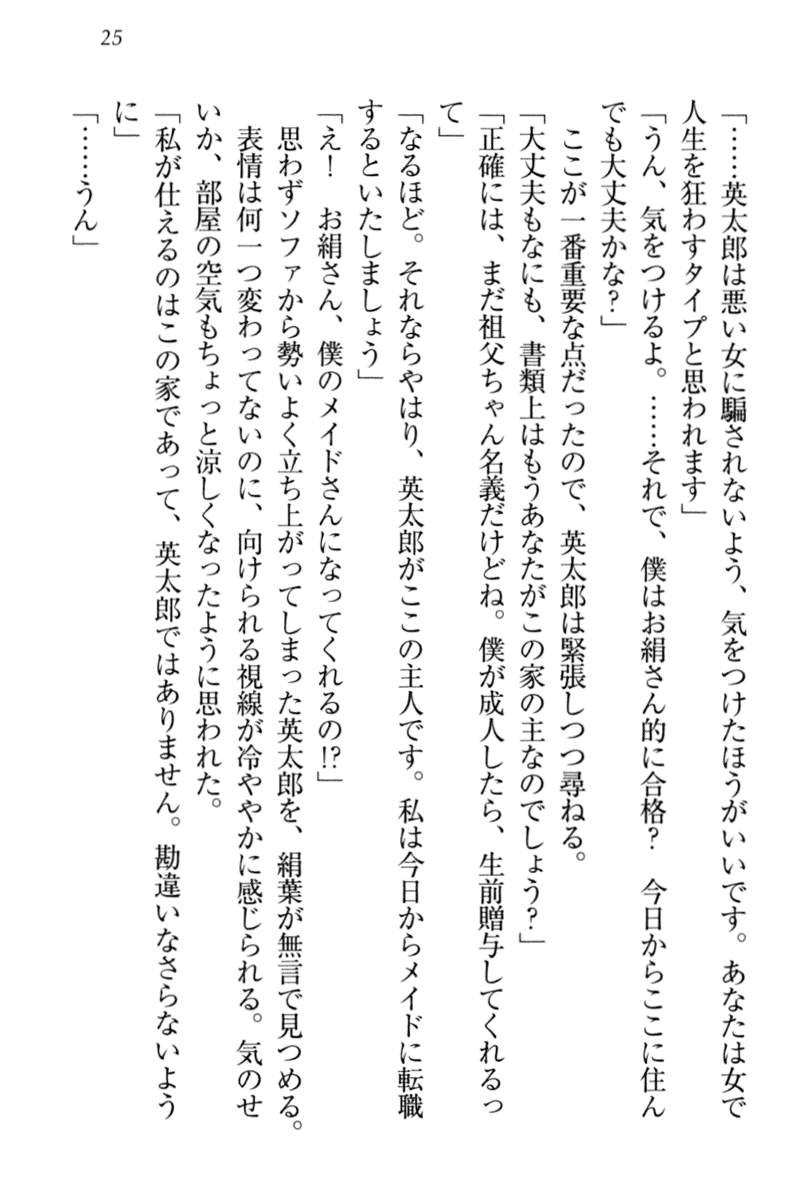 25
「……英太郎は悪い女に騙されないよう、気をつけたほうがいいです。あなたは女で
人生を狂わすタイプと思われます」
「うん、気をつけるよ。……それで、僕はお絹さん的に合格？　今日からここに住ん
でも大丈夫かな？」
　ここが一番重要な点だったので、英太郎は緊張しつつ尋ねる。
「大丈夫もなにも、書類上はもうあなたがこの家の主なのでしょう？」
「正確には、まだ祖父ちゃん名義だけどね。僕が成人したら、生前贈与してくれるっ
て」
「なるほど。それならやはり、英太郎がここの主人です。私は今日からメイドに転職
するといたしましょう」
「え！　お絹さん、僕のメイドさんになってくれるの!?」
　思わずソファから勢いよく立ち上がってしまった英太郎を、絹葉が無言で見つめる。
　表情は何一つ変わってないのに、向けられる視線が冷ややかに感じられる。気のせ
いか、部屋の空気もちょっと涼しくなったように思われた。
「私が仕えるのはこの家であって、英太郎ではありません。勘違いなさらないよう
に」
「……うん」